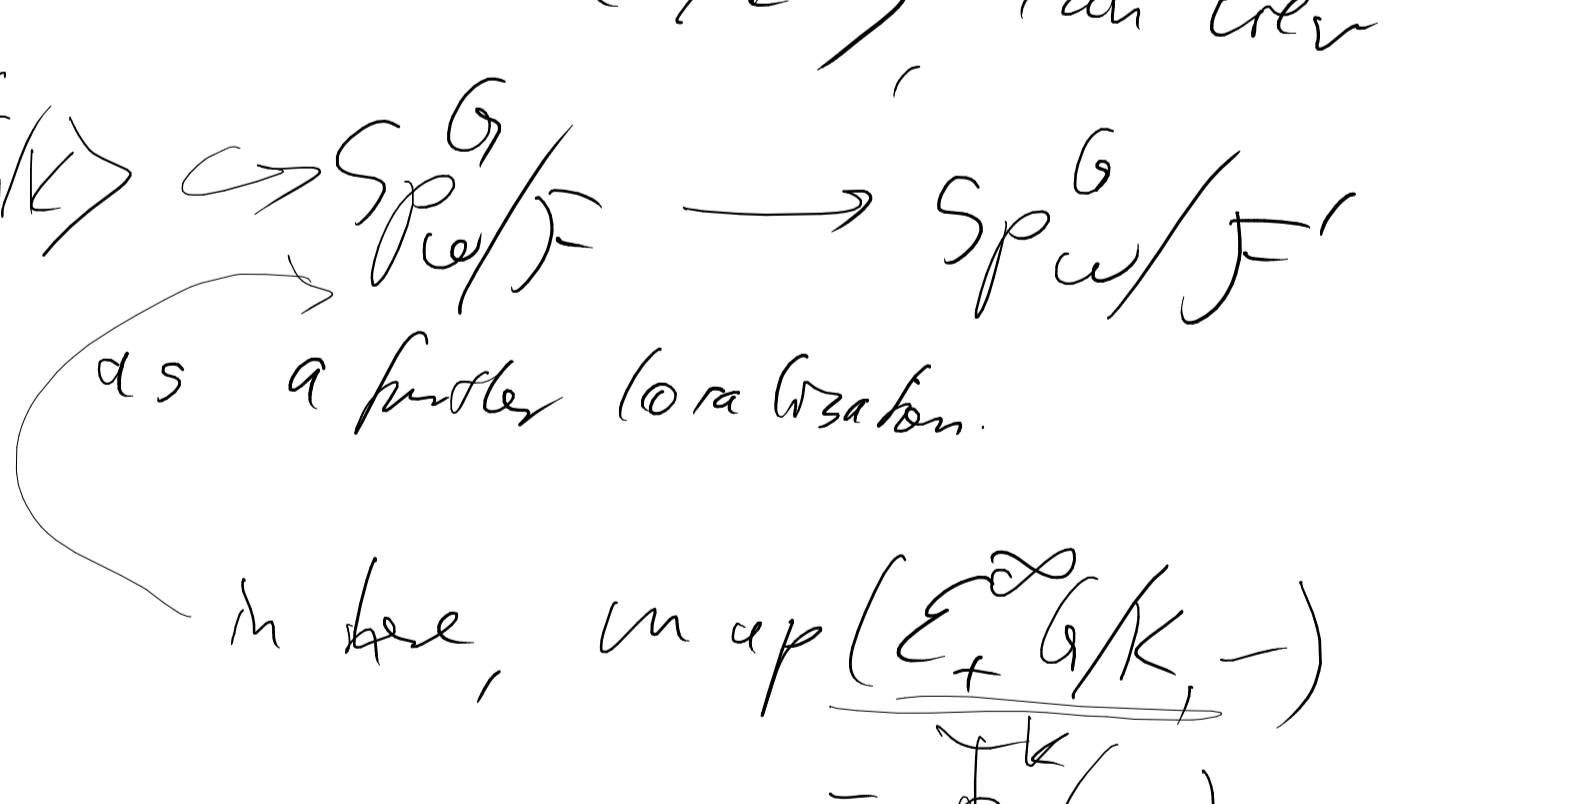 can view
/K> ↪ Sp^G_ω/F → Sp^G_ω/F'
as a further localization.
in here, map(Σ^∞_+ G/K, -)
= Φ^K(